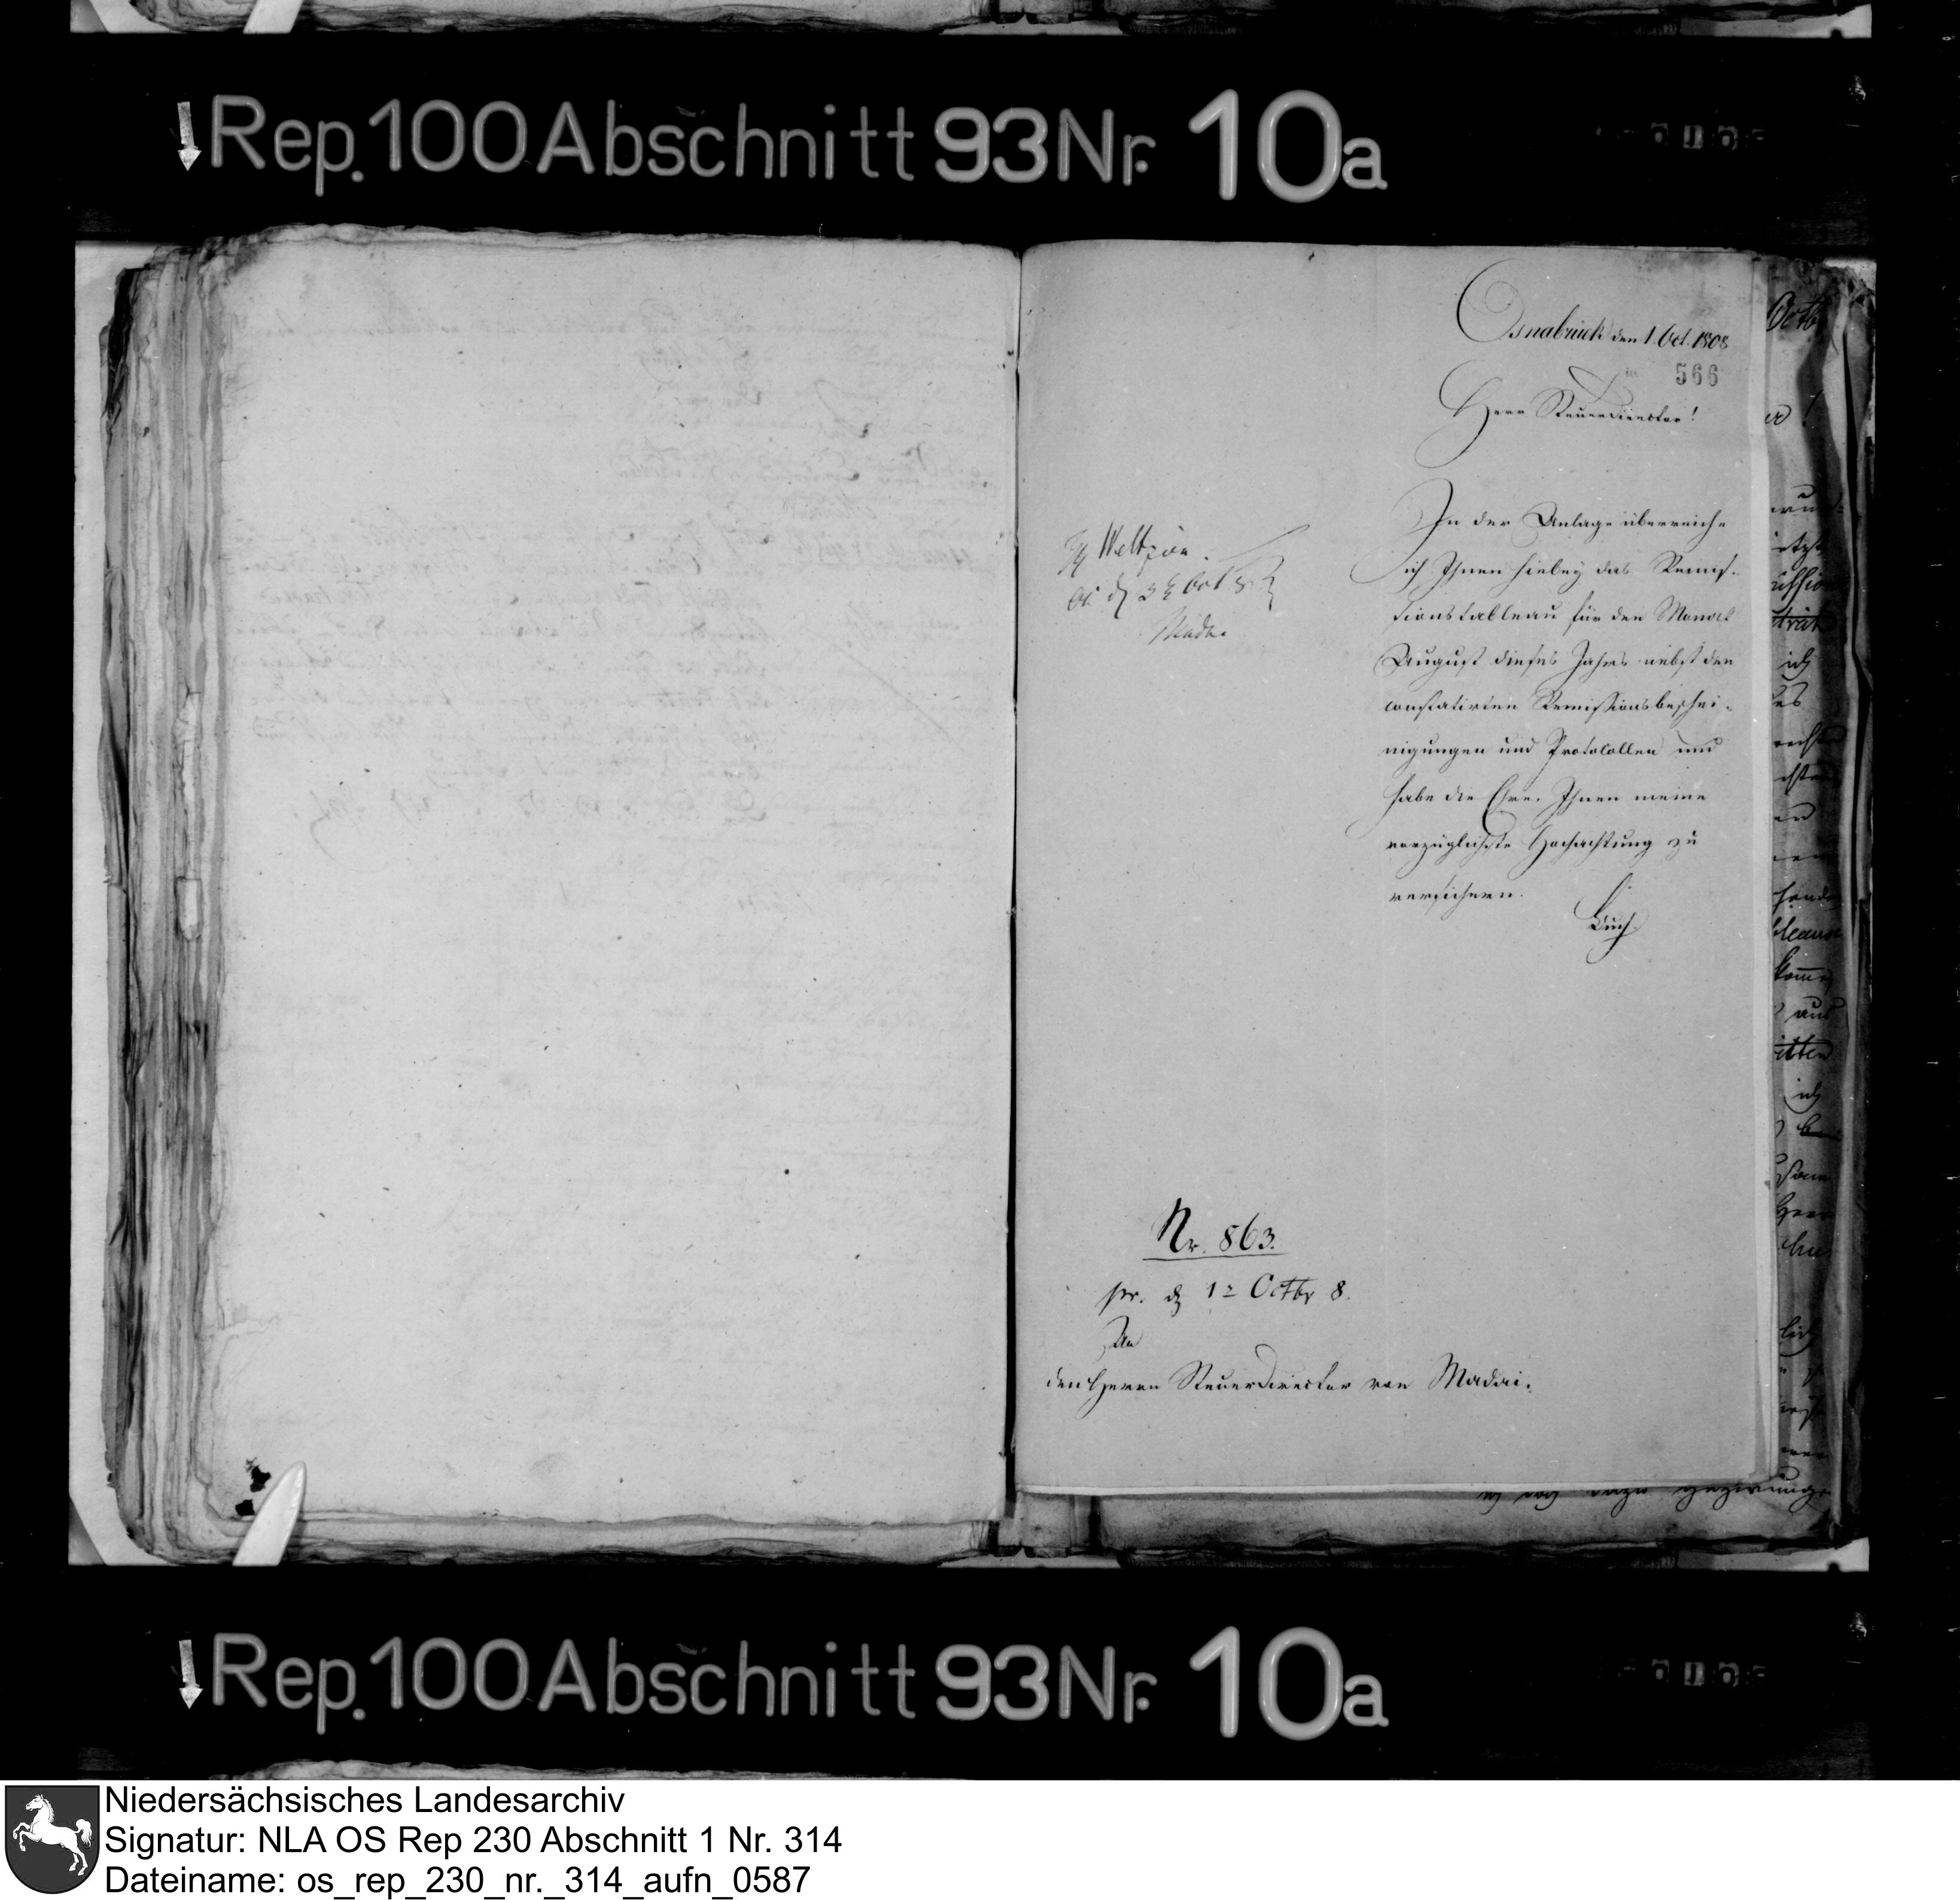 Rep. 100 Abschnitt 93 Nr. 10a
Osnabrück den 1. Oct. 1808
566
Herr Steuerdirector!
In der Anlage überreiche
ich Ihnen hiebey das Remis-
sionstableau für den Monat
August dieses Jahrs nebst den
constatirten Remissionsbeschei-
nigungen und Protocollen und
habe die Ehre, Ihnen meine
vorzüglichste Hochachtung zu
versichern.
H Weltzien.
d 3 Oct 8
Mada.
Nr. 863.
pr. d 1 Octbr 8.
An
den Herrn Steuerdirector von Madai.
Rep. 100 Abschnitt 93 Nr. 10a
Niedersächsisches Landesarchiv
Signatur: NLA OS Rep 230 Abschnitt 1 Nr. 314
Dateiname: os_rep_230_nr._314_aufn_0587